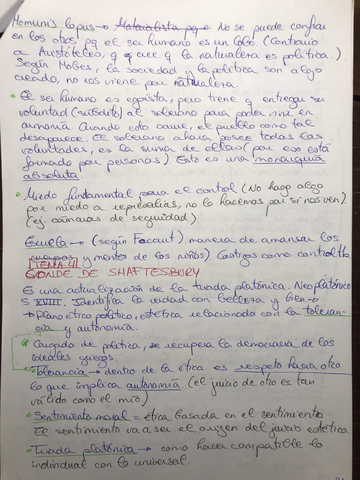 Homunis lupus → Materialista pq e No se puede confiar
en los otros pq el ser humano es un lobo (Contrario
a Aristóteles, q cree q la naturaleza es política.)
Según Hobes, la sociedad y la política son algo
creado, no nos viene por naturaleza.
• El ser humano es egoísta, pero tiene q entregar su
voluntad (súbdito) al soberano para poder vivir en
armonía Cuando esto ocurre, el pueblo como tal
desaparece. El soberano ahora posee todas las
voluntades, es la suma de ellos (por eso está
formado por personas). Esto es una monarquía
absoluta!
• Miedo fundamental para el control (No hago algo
por miedo a represalias, no lo hacemos por si nos ven)
(ej. cámaras de seguridad).
Escuela → (según Focaut) manera de amansar los
y mentes de los niños). Castigos como control
TEMA II
CONDE DE SHAFTESBURY
Es una actualización de la triada platónica. Neoplatónico
S XVIII. Identifica la verdad con belleza y bien →
→ Plano ético político, estética relacionado con la toleran-
cia y autonomía.
Cargado de política, se recupera la democracia de los
ideales griegos.
• Tolerancia → dentro de la ética es respeto hacia otro
lo que implica autonomía (el juicio de otro es tan
válido como el mío)
• Sentimiento moral = ética basada en el sentimiento
El sentimiento va a ser el origen del juicio estético.
• Triada platónica → como hacer compatible lo
individual con lo universal.